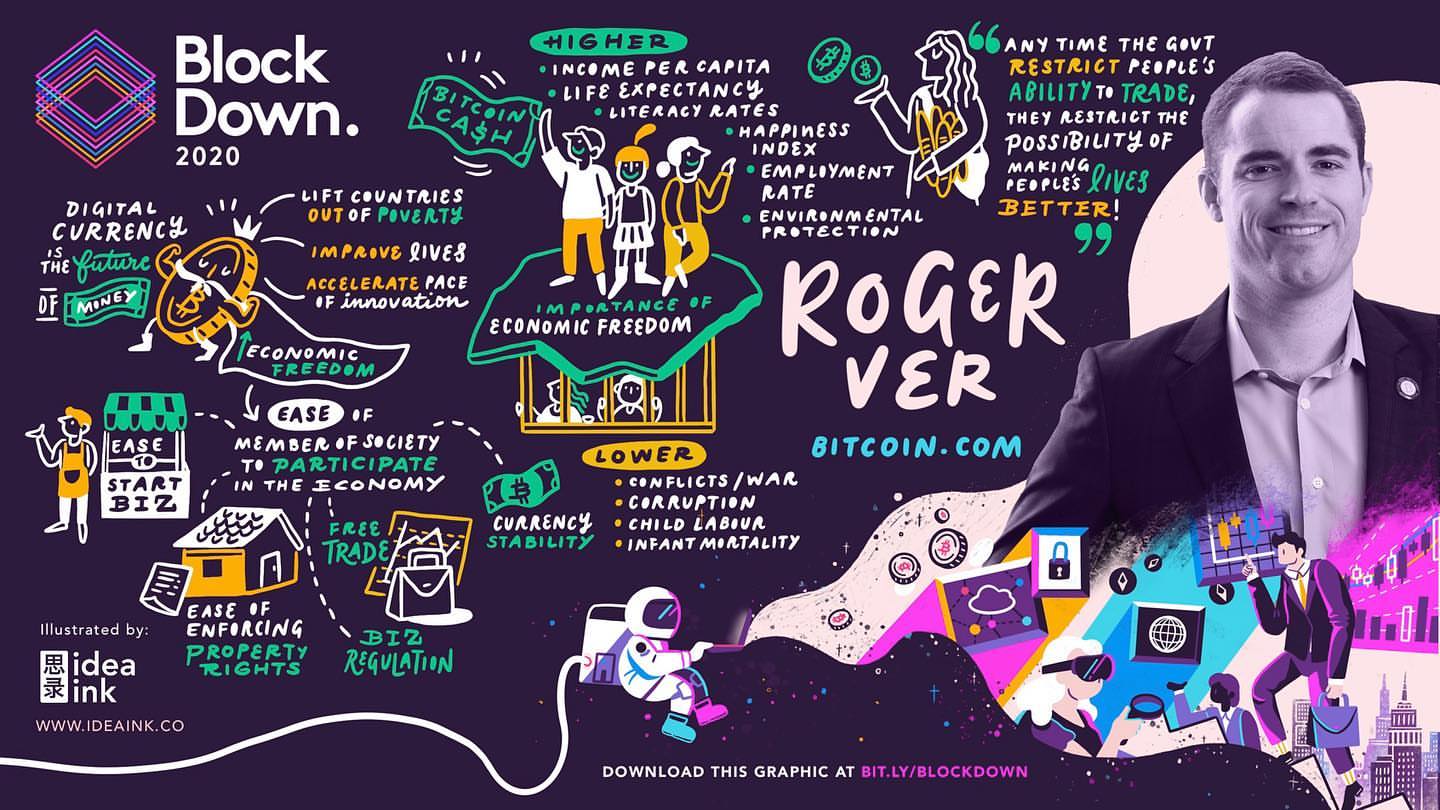 Block
Down.
2020
DIGITAL
CURRENCY
IS
THE future
OF MONEY
LIFT COUNTRIES
OUT OF POVERTY
IMPROVE LIVES
ACCELERATE PACE
OF innovation
↑ECONOMIC
FREEDOM
EASE OF
MEMBER OF SOCIETY
TO PARTICIPATE
IN THE ECONOMY
EASE
TO
START
BIZ
EASE OF
ENFORCING
PROPERTY
RIGHTS
FREE
TRADE
BIZ
REGULATION
CURRENCY
STABILITY
BITCOIN
CA$H
HIGHER
• INCOME PER CAPITA
• LIFE EXPECTANCY
• LITERACY RATES
• HAPPINESS
INDEX
• EMPLOYMENT
RATE
• ENVIRONMENTAL
PROTECTION
IMPORTANCE OF
ECONOMIC FREEDOM
LOWER
• CONFLICTS/WAR
• CORRUPTION
• CHILD LABOUR
• INFANT MORTALITY
“ANY TIME THE GOVT
RESTRICT PEOPLE'S
ABILITY TO TRADE,
THEY RESTRICT THE
POSSIBILITY OF
MAKING
PEOPLE'S LIVES
BETTER!
”
ROGER
VER
BITCOIN.COM
Illustrated by:
思录
idea
ink
WWW.IDEAINK.CO
DOWNLOAD THIS GRAPHIC AT BIT.LY/BLOCKDOWN